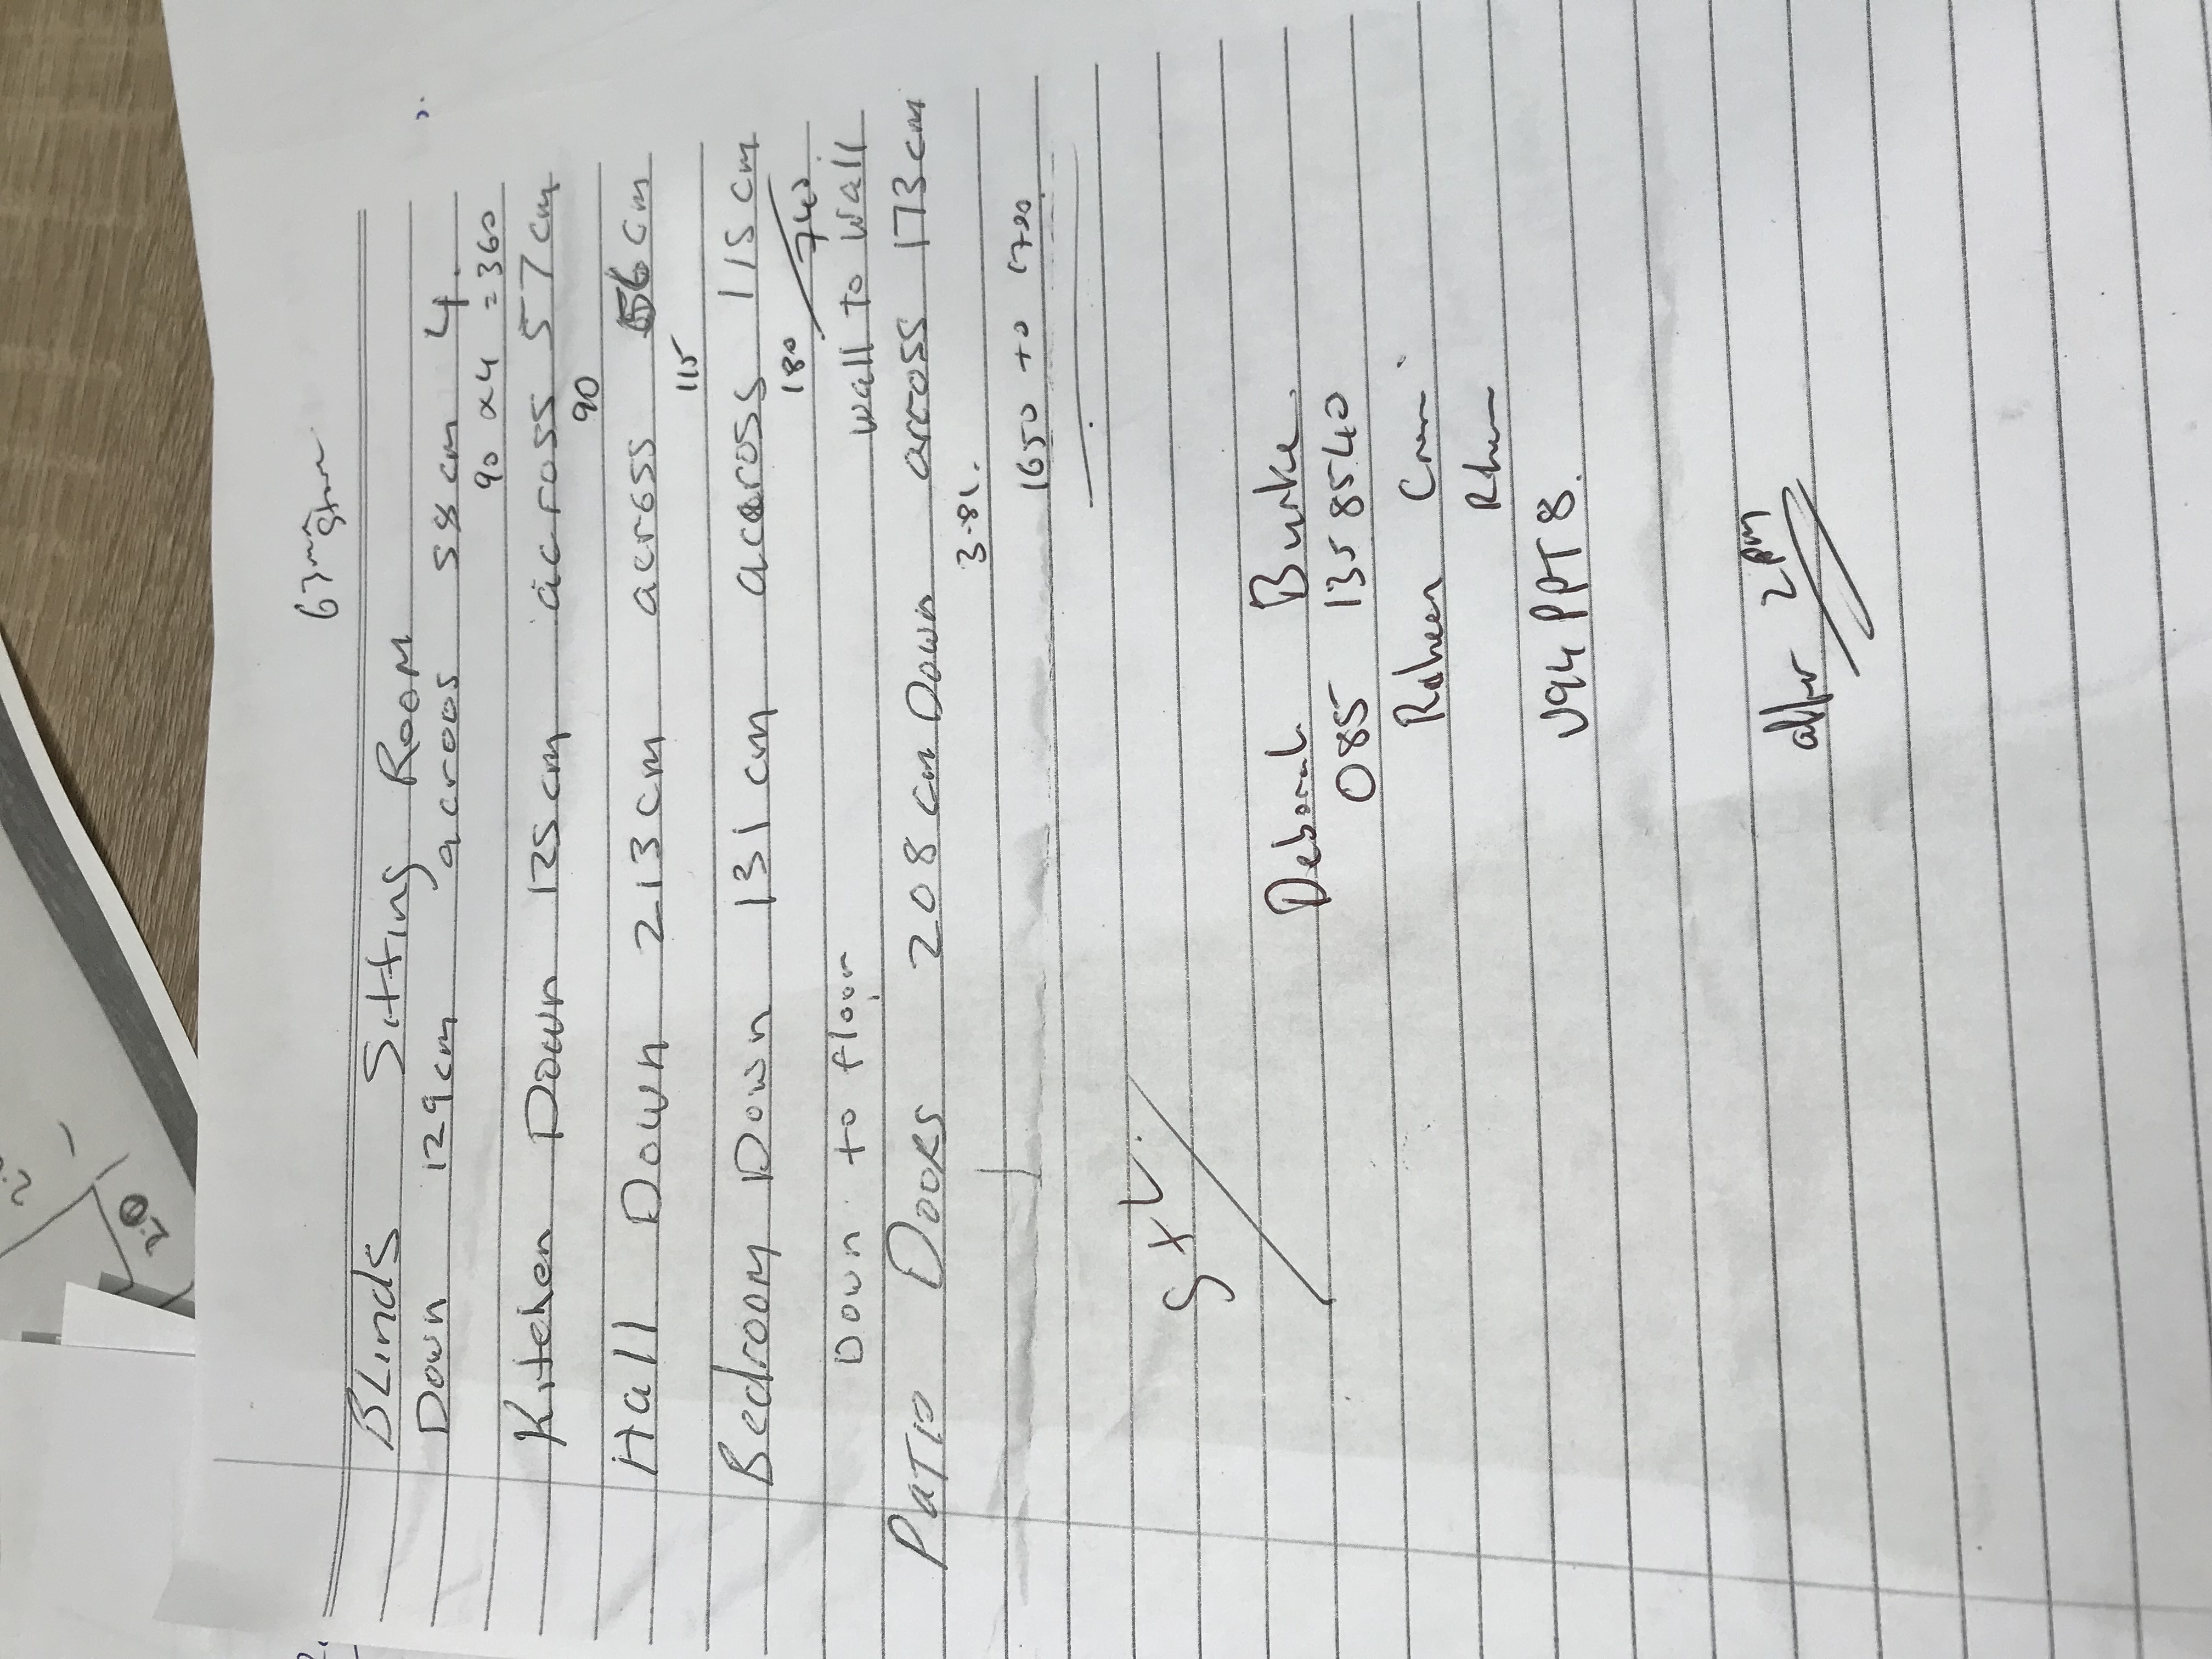 BLinds Sitting Room
Down 129cm acroos 58cm 4.
90 x 4 = 360
Kitchen Down 125cm accross 57cm
90
Hall Down 213cm across 56cm
115
Bedroom Down 131cm accross 115cm
180 740
Down to floor wall to wall
Patio Doors 208cm Down across 173cm
3-81.
1650 to 1700
Deborah Burke
085 1358540
Raheen
V94PPT8.
after 2pm